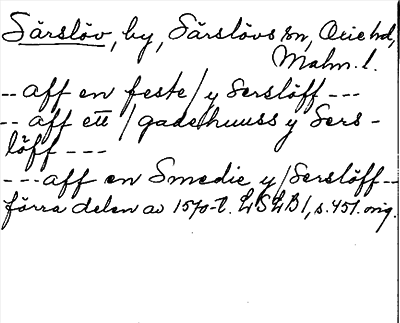 Särslöv, by, Särslövs sn, Oxie hd,
Malm. l.
-- aff en feste / y Serslöff ---
-- aff ett / gadehuuss y Sers-
löff ---
--- aff en Smedie y / Serslöff --
förra delen av 1570-t. LSLB 1, s. 451. orig.